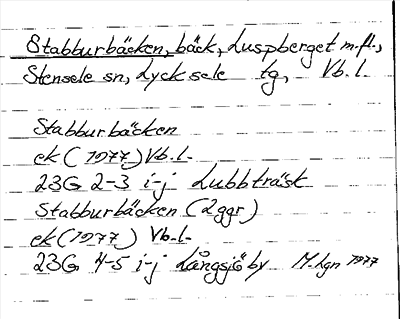 Stabburbäcken, bäck, Luspberget m.fl.,
Stensele sn, Lycksele tg, Vb.l.
Stabburbäcken
ek (1977) Vb.l.
23G 2-3 i-j Lubbträsk
Stabburbäcken (2ggr)
ek (1977) Vb.l.
23G 4-5 i-j Långsjöby M.hgn 1977